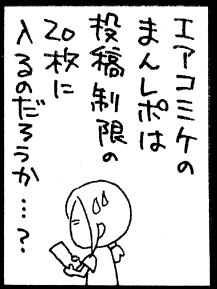 エアコミケの
まんレポは
投稿制限の
20枚に
入るのだろうか…?